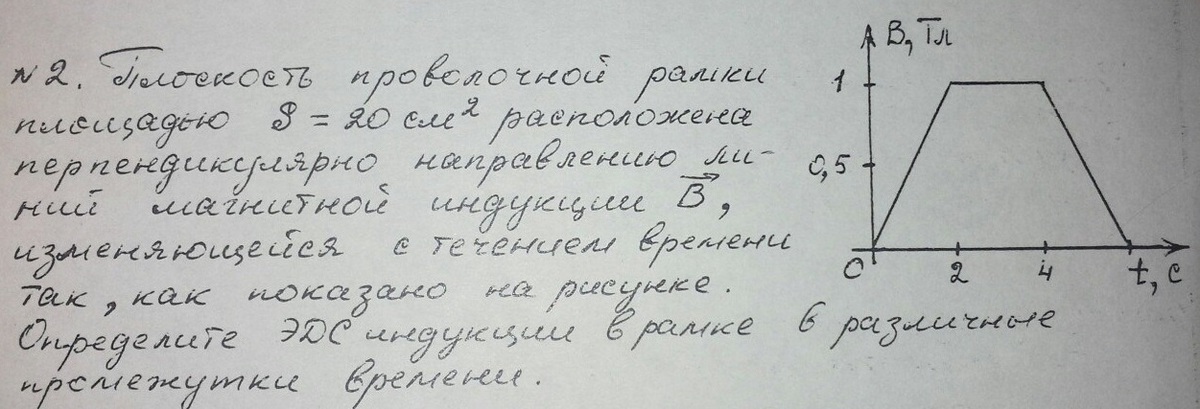 N2. Плоскость проволочной рамки
площадью S = 20 см² расположена
перпендикулярно направлению ли-
ний магнитной индукции B⃗,
изменяющейся с течением времени
так, как показано на рисунке.
Определите ЭДС индукции в рамке в различные
промежутки времени.
B, Тл
1
0,5
0 2 4 t, c